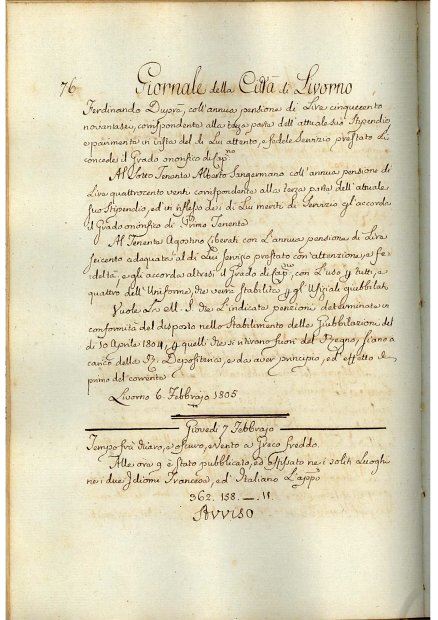 76 Giornale della Città di Livorno
Ferdinando Duprà, coll'annua pensione di Lire cinquecento
novantasei, corrispondente alla terza parte dell'attuale suo Stipendio
e parimenta in vista del di Lui attento, e fedele Servizio prestato Li
concede il Grado onorifico di Cap.no
Al Sotto Tenente Alberto Sangermano coll'annua pensione di
Lire quattrocento venti corrispondente alla terza parte dell'attuale
suo Stipendio, ed in riflesso dei di Lui meriti di Servizio gl'accorda
il Grado onorifico di Primo Tenente
Al Tenente Agostino Liberati con L'annua pensione di Lire
Seicento adeguata al di Lui servizio prestato con attenzione, e fe=
deltà, e gli accorda altresì il Grado di Cap.no, con L'uso p tutti, e
quattro dell'Uniforme, che verrà stabilita p gl'Ufiziali giubbilati
Vuole La M. S. che L'indicate pensioni determinate in
conformità del disposto nello Stabilimento delle Giubbilazioni del
dì 10 Aprile 1804, p quelli che si ritirano fuori del Regno, siano a
carico della R. Depositeria, e da aver principio, ed effetto il
primo del corrente
Livorno 6. Febbrajo 1805
Giovedì 7 Febbrajo
Tempo frà chiaro, e oscuro, e vento a Greco freddo.
Alle ore 9 è stato pubblicato, ed affissato nei soliti Luoghi
nei due Idiomi Francese, ed Italiano L'app.o
362. 158. — 11.
Avviso